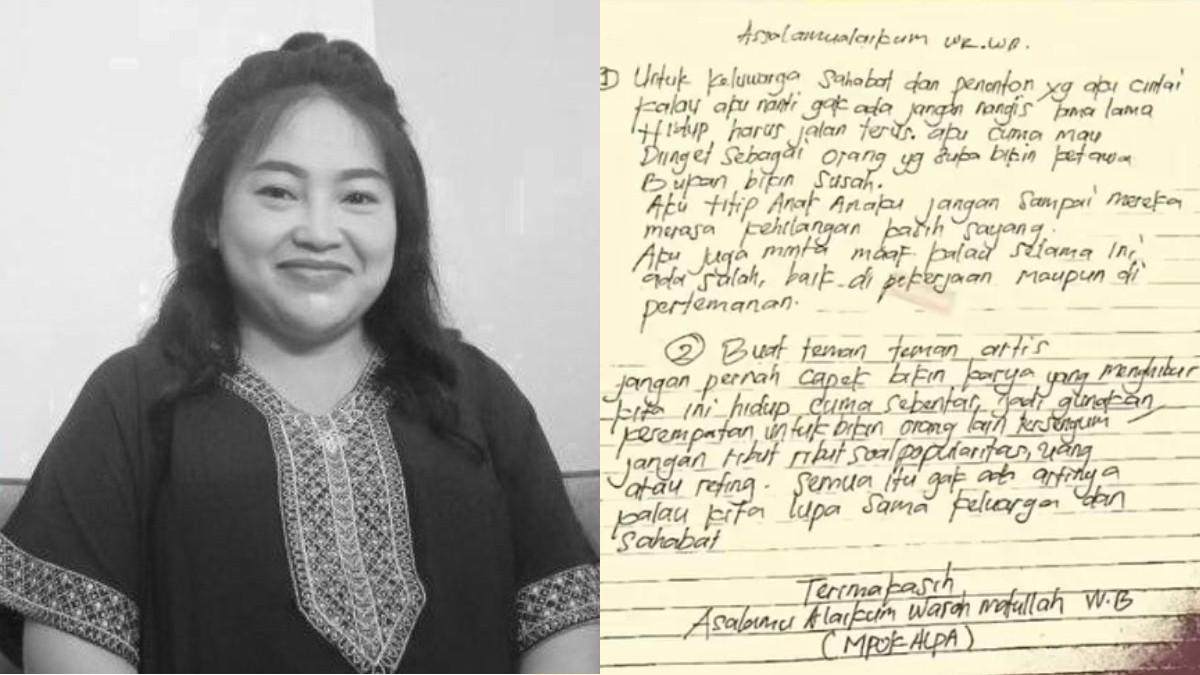 Assalamualaikum WR.WB.
1) Untuk keluwarga sahabat dan penonton yg aku cintai
kalau aku nanti gak ada jangan nangis lama lama
Hidup harus jalan terus. aku cuma mau
Diinget Sebagai orang yg suka bikin ketawa
Bukan bikin susah.
Aku titip Anak Anaku jangan sampai mereka
merasa kehilangan kasih sayang.
Aku juga minta maaf kalau selama ini,
ada salah, baik di pekerjaan maupun di
pertemanan.
② Buat teman teman artis
jangan pernah capek bikin karya yang menghibur
kita ini hidup cuma sebentar, jadi gunakan
kesempatan untuk bikin orang lain tersenyum
jangan ribut ribut soal popularitas, uang
atau reting. Semua itu gak ada artinya
kalau kita lupa sama keluarga dan
sahabat
Terimakasih
Asalamu Alaikum Warah matullah W.B
(MPOK ALPA)